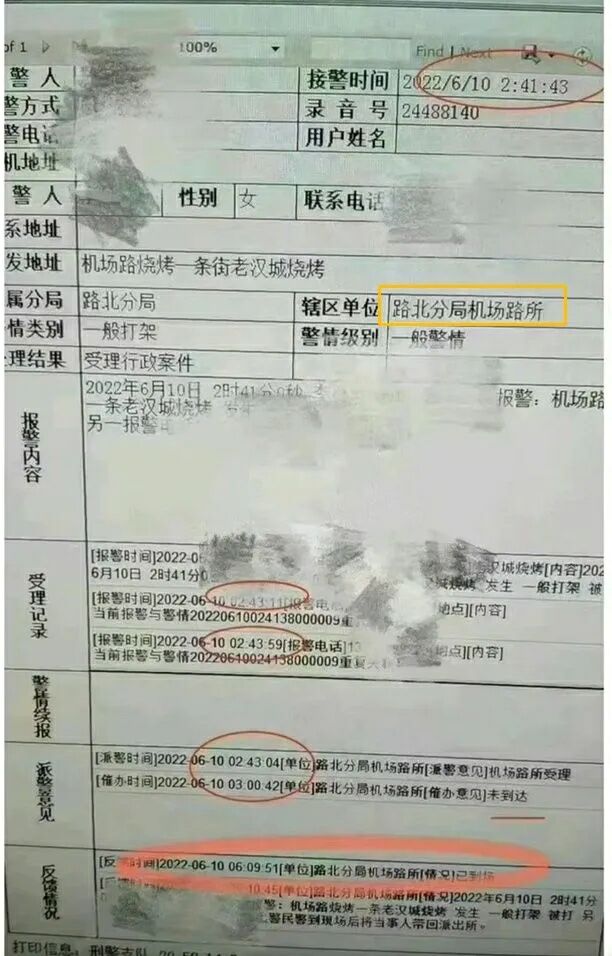 of 1
100%
Find | Next
警 人
接警时间
2022/6/10 2:41:43
警方式
录 音 号
24488140
警电话
用户姓名
机地址
警 人
性别
女
联系电话
系地址
发地址
机场路烧烤一条街老汉城烧烤
属分局
路北分局
辖区单位
路北分局机场路所
情类别
一般打架
警情级别
一般警情
理结果
受理行政案件
报警内容
2022年6月10日 2时41分0秒
报警: 机场路
一条老汉城烧烤
另一报警
受理记录
[报警时间]2022-06
汉城烧烤[内容]202
6月10日 2时41分0
城烧烤 发生 一般打架 被
[报警时间]2022-06-10 02:43:11[报警电话
地点][内容]
当前报警与警情20220610024138000009重
[报警时间]2022-06-10 02:43:59[报警电话]13
地点][内容]
当前报警与警情20220610024138000009重复
警情续报
派警意见
[派警时间]2022-06-10 02:43:04[单位]路北分局机场路所[派警意见]机场路所受理
[催办时间]2022-06-10 03:00:42[单位]路北分局机场路所[催办意见]未到达
反馈情况
[反馈时间]2022-06-10 06:09:51[单位]路北分局机场路所[情况]已到场
10:45[单位]路北分局机场路所[情况]2022年6月10日 2时41分
警: 机场路烧烤一条老汉城烧烤 发生 一般打架 被打 另
警民警到现场后将当事人带回派出所。
打印信息: 刑警支队